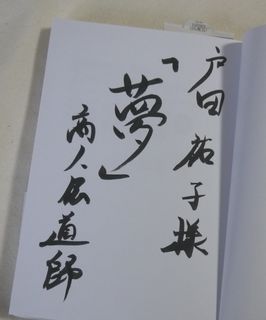 戸田 祐子様
「夢」
商人伝道師